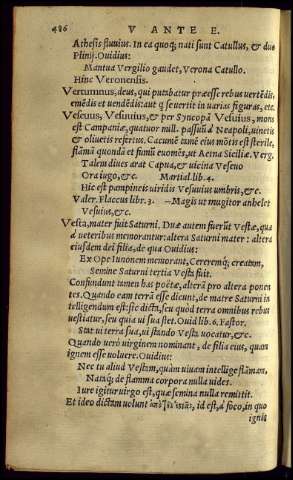 486 V ANTE E.
Athesis fluuius. In ea quoq; nati sunt Catullus, & duo
Plinij. Ouidius:
Mantua Vergilio gaudet, Verona Catullo.
Hinc Veronensis.
Vertumnus, deus, qui putabatur præesse rebus vertēdis,
emēdis et uendēdis: aut q̃ se uertit in varias figuras, etc.
Veseuus, Vesuuius, & per Syncopã Vesuius, mons
est Campaniæ, quatuor mill. passuũ à Neapoli, uinetis
& oliuetis refertus. Cacumẽ tamẽ eius mõtis est sterile,
flãmã quondã et fumũ euomẽs, ut Aetna Siciliæ. Verg.
Talem diues arat Capua, & uicina Veseuo
Ora iugo, &c. Martial. lib. 4.
Hic est pampineis uiridis Vesuuius umbris, &c.
Valer. Flaccus libr. 3. – Magis ut mugitor anhelet
Vesuius, &c.
Vesta, mater fuit Saturni. Duæ autem fuerũt Vestæ, quæ
à ueteribus memorantur: altera Saturni mater: altera
eiusdem dei filia, de qua Ouidius:
Ex Ope Iunonem memorant, Cereremq; creatam,
Semine Saturni tertia Vesta fuit.
Confundunt tamen has poëtæ, alterã pro altera ponen
tes. Quando eam terrã esse dicunt, de matre Saturni in
telligendum est: sic dicta, seu quòd terra omnibus rebus
uestiatur, seu quia ui sua stet. Ouid. lib. 6. Fastor.
Stat ui terra sua, ui stando Vesta vocatur, &c.
Quando uerò virginem nominant, de filia eius, quam
ignem esse voluere. Ouidius:
Nec tu aliud Vestam, quàm uiuam intellige flãmam,
Natãq; de flamma corpora nulla uides.
Iure igitur uirgo est, quæ semina nulla remittit.
Et ideo dictam uolunt ἀπὸ τῆς ἑστίας, id est, à foco, in quo
ignis